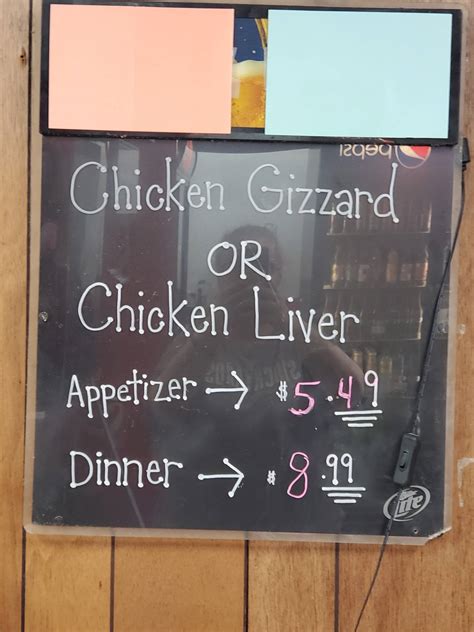 pepsi
Chicken Gizzard
OR
Chicken Liver
Appetizer → $5.49
Dinner → $8.99
Lite